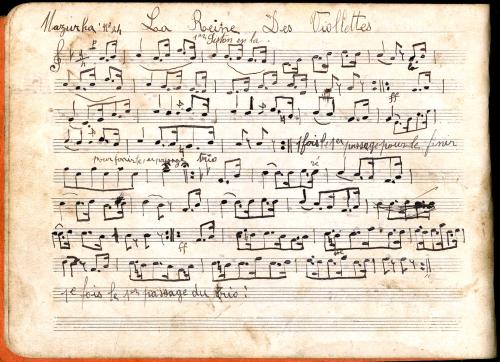 Mazurka: N° 24 La Reine Des Viollettes
1er piston en la.
ff
1 fois le 1er passage pour le finir
pour finir le 1er passage trio
ré
ff
1e fois le 1er passage du trio!